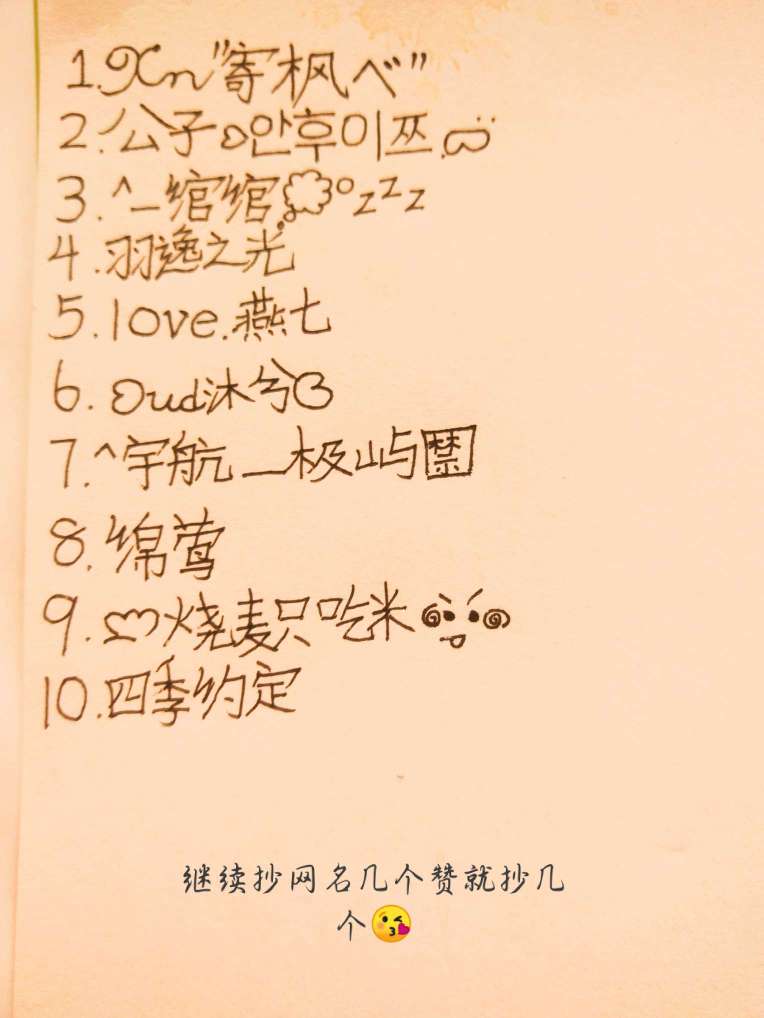 1.Xn"寄枫ベ"
2.公子ʚ안후이쯔.ɞ̈
3.^_绾绾💭°zzz
4.羽逸之光
5.love.燕七
6.ʚud沐兮ɞ
7.^宇航_极屿🈲
8.绵莺
9.ෆ烧麦只吃米
10.四季约定
继续抄网名几个赞就抄几
个😘